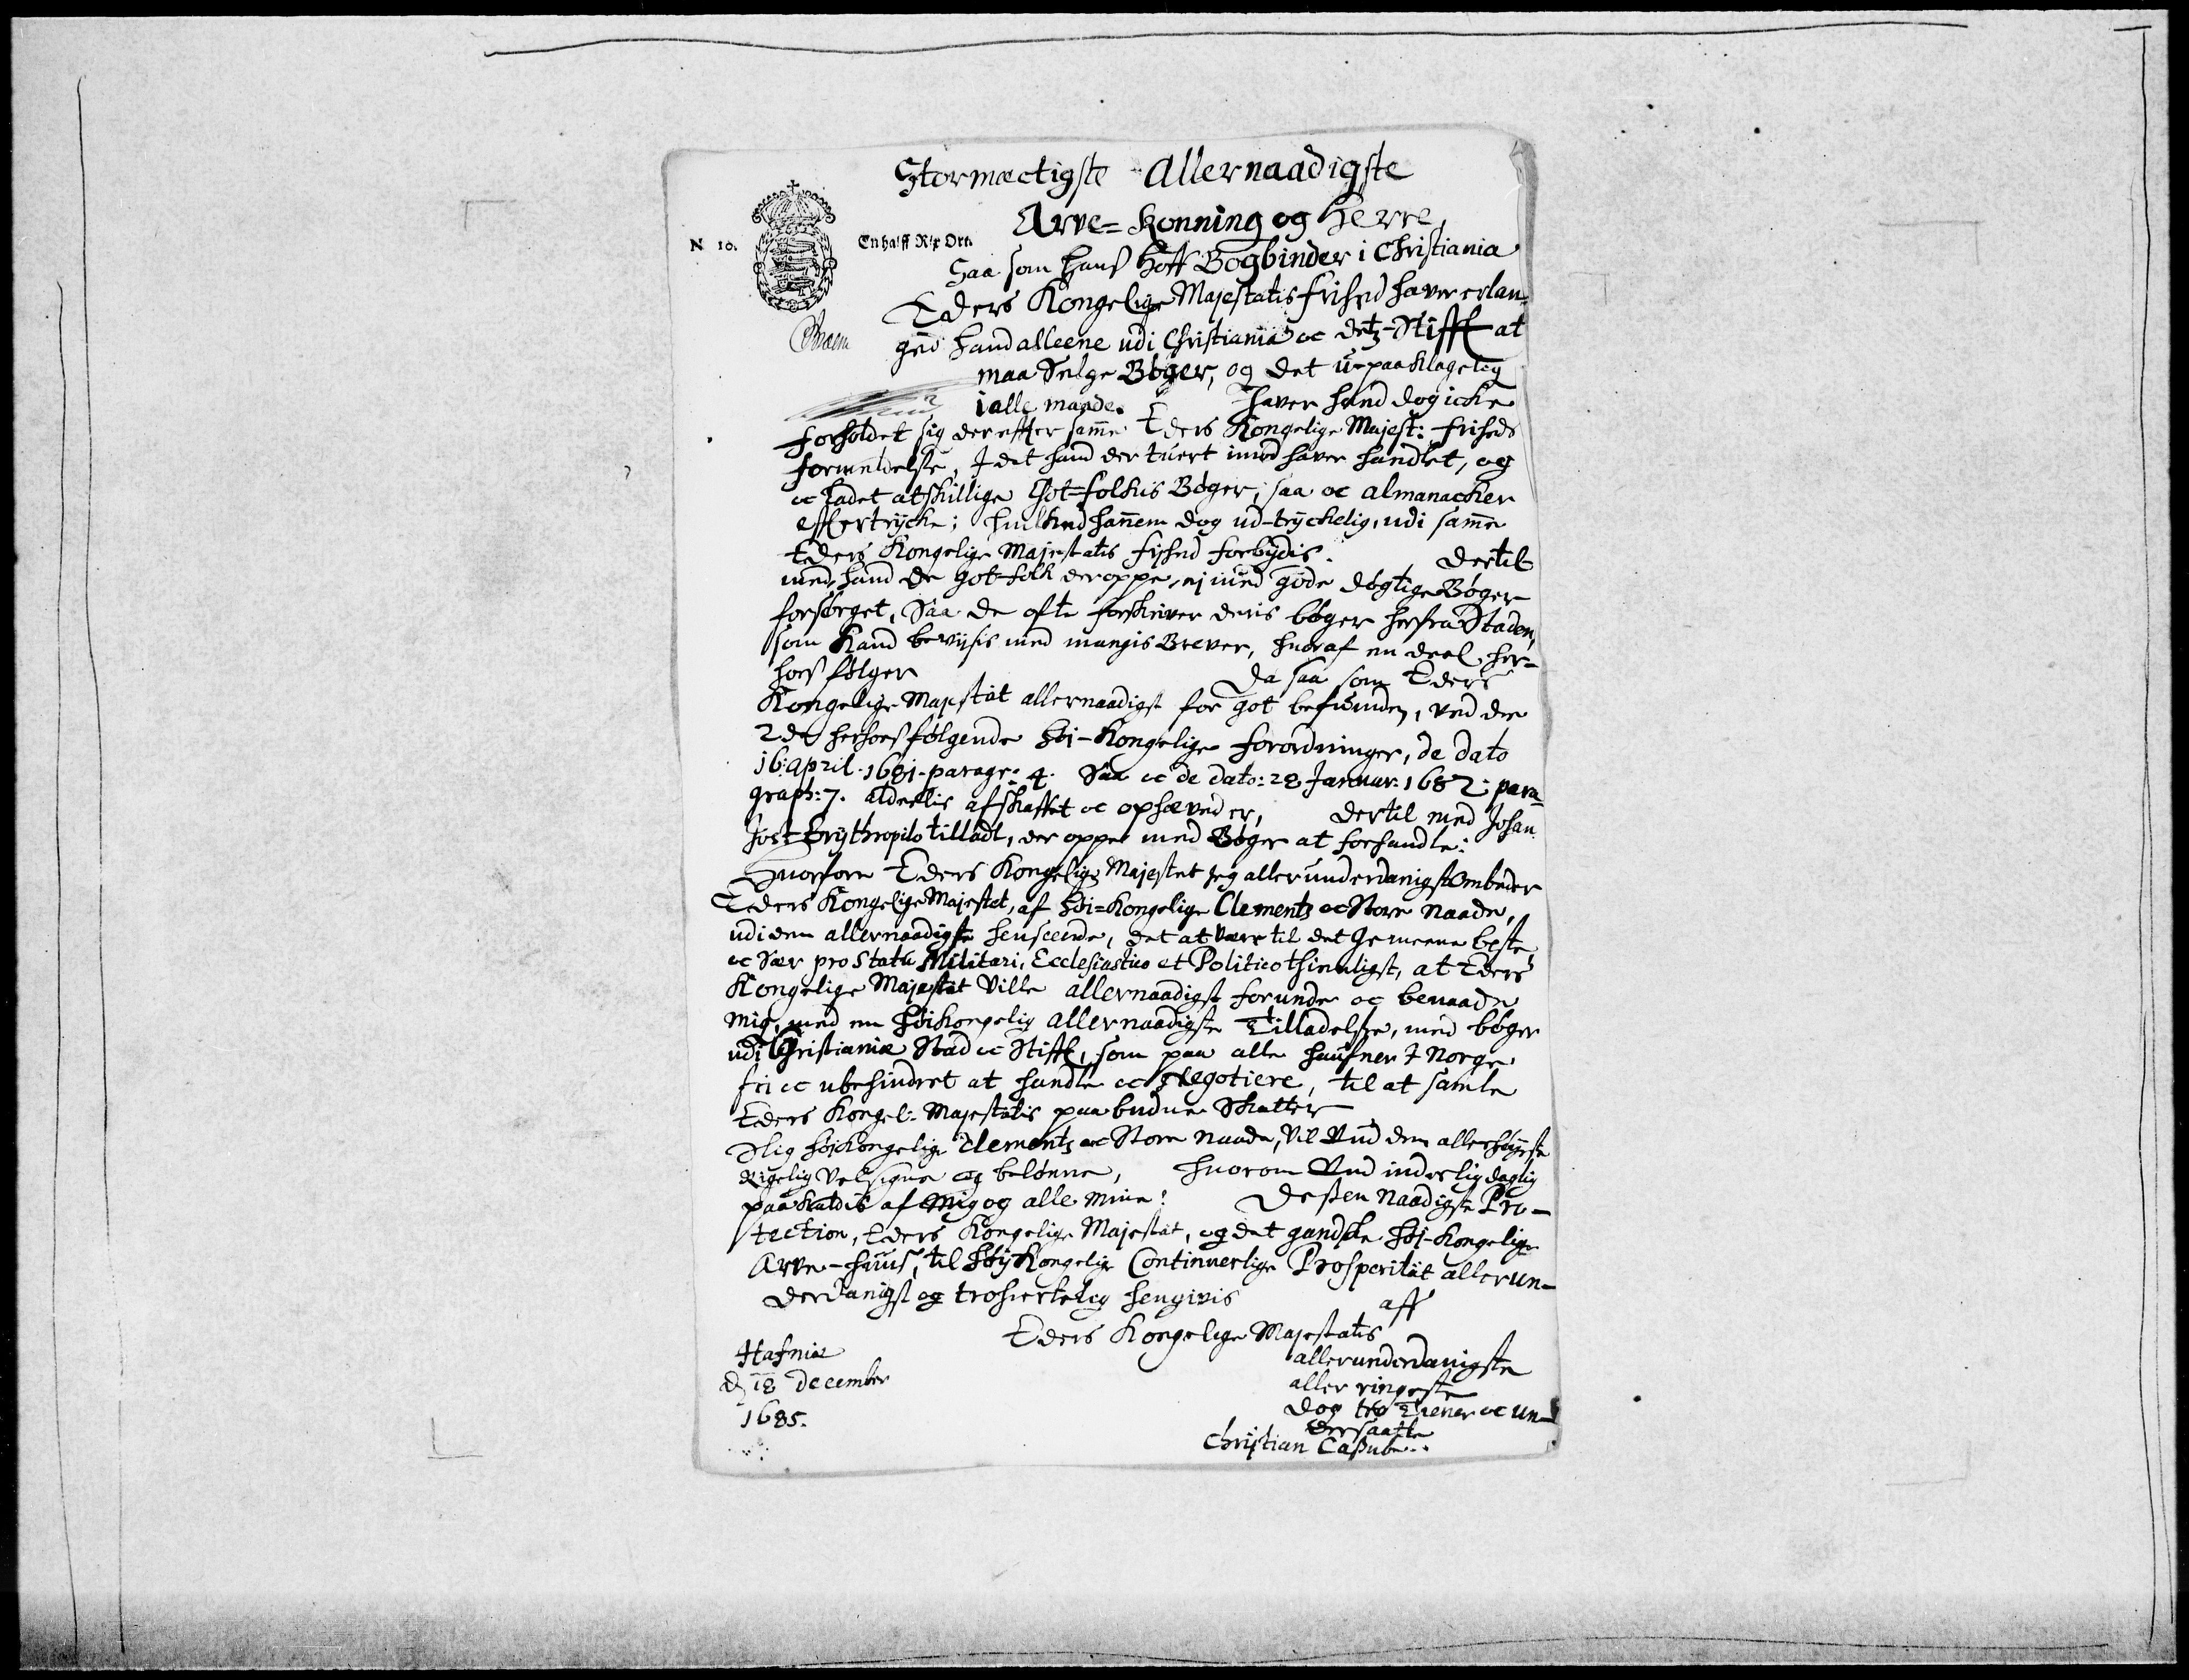 Stormectigste Allernaadigste
Arve=Konning og Herre,
N 10. En halff Rix Ort.
Saa som Hans Hoff Bogbinder i Christiania
Eders Kongelige Majestatis frihed haver erlan=
ged hand alleene udi Christiania oc detz-Stifft at
maa Selge Bøger, og det u-paaklageleg
i alle maade. haver hand dog icke
forholdet sig der effter same Eders Kongelige Majest: friheds
formeldelse, I det hand der tuert imod haver handlet, og
oc ladet atskillige Got=folkis Bøger, saa oc almanacker
efftertrycke; huilked hanem dog ud-tryckelig, udi same
Eders Kongelige Majestatis fryhed forbydis. Dertil
med, hand de got-folk deroppe, ej med gode døgtige Bøger
forsørget, Saa de ofte forskriver deris bøger herfra Staden,
som Kand bevysis med mangis Brever, huoraf en deel, her=
hoes følger Da saa som Eders
Kongelige Majestät allernaadigst for got befunden, ved de
2de herhoesfølgende høj-Kongelige forordninger, de dato
16: april. 1681. paragr: 4. Saa oc de dato: 28 Januar: 1682: para=
graph: 7. aldeelis afskaffet oc ophæved er, dertil med Johan
Jost Erythropilo tilladt, der oppe med Bøger at forhandle:
Huorfore Eders Kongelige Majestet Jeg allerunderdanigst Ombeder
Eders Kongelige Majestet, af høi=Kongelige Clementz oc Store Naade,
udi den allernaadigste henseende, det at være til det Gemeene beste,
oc Sær pro Statu Militari, Ecclesiastico et Politico thienligst, at Eders
Kongelige Majestät Ville allernaadigst forunde oc benaade
mig, med en høikongelig allernaadigste Tilladelse, med bøger
udi Christiania Stad oc Stifft, som paa alle haufner I Norge
fri oc ubehindret at handle oc Negotiere, til at samle
Eders Kongel: Majestatis paabudne Skatter
Slig høikongelige Clementz oc Store naade, Vil Gud den allerhøyeste
Rigelig Velsigne og belønne, huorom Gud inderlig daglig
paakaldis af Mig og alle mine! Dessen Naadigste Pro-
tection, Eders Kongelige Majestät, og det gandske høj-Kongelige
Arve-huus, til høy Kongelige Continuerlige Prosperität allerun-
derdanigst og trohierteleg hengivis
aff
Eders Kongelige Majestatis
allerunderdanigste
aller ringeste
dog tro Tiener oc un-
dersaatte
Christian Cassube.
Hafniæ
d 18 December
1685.